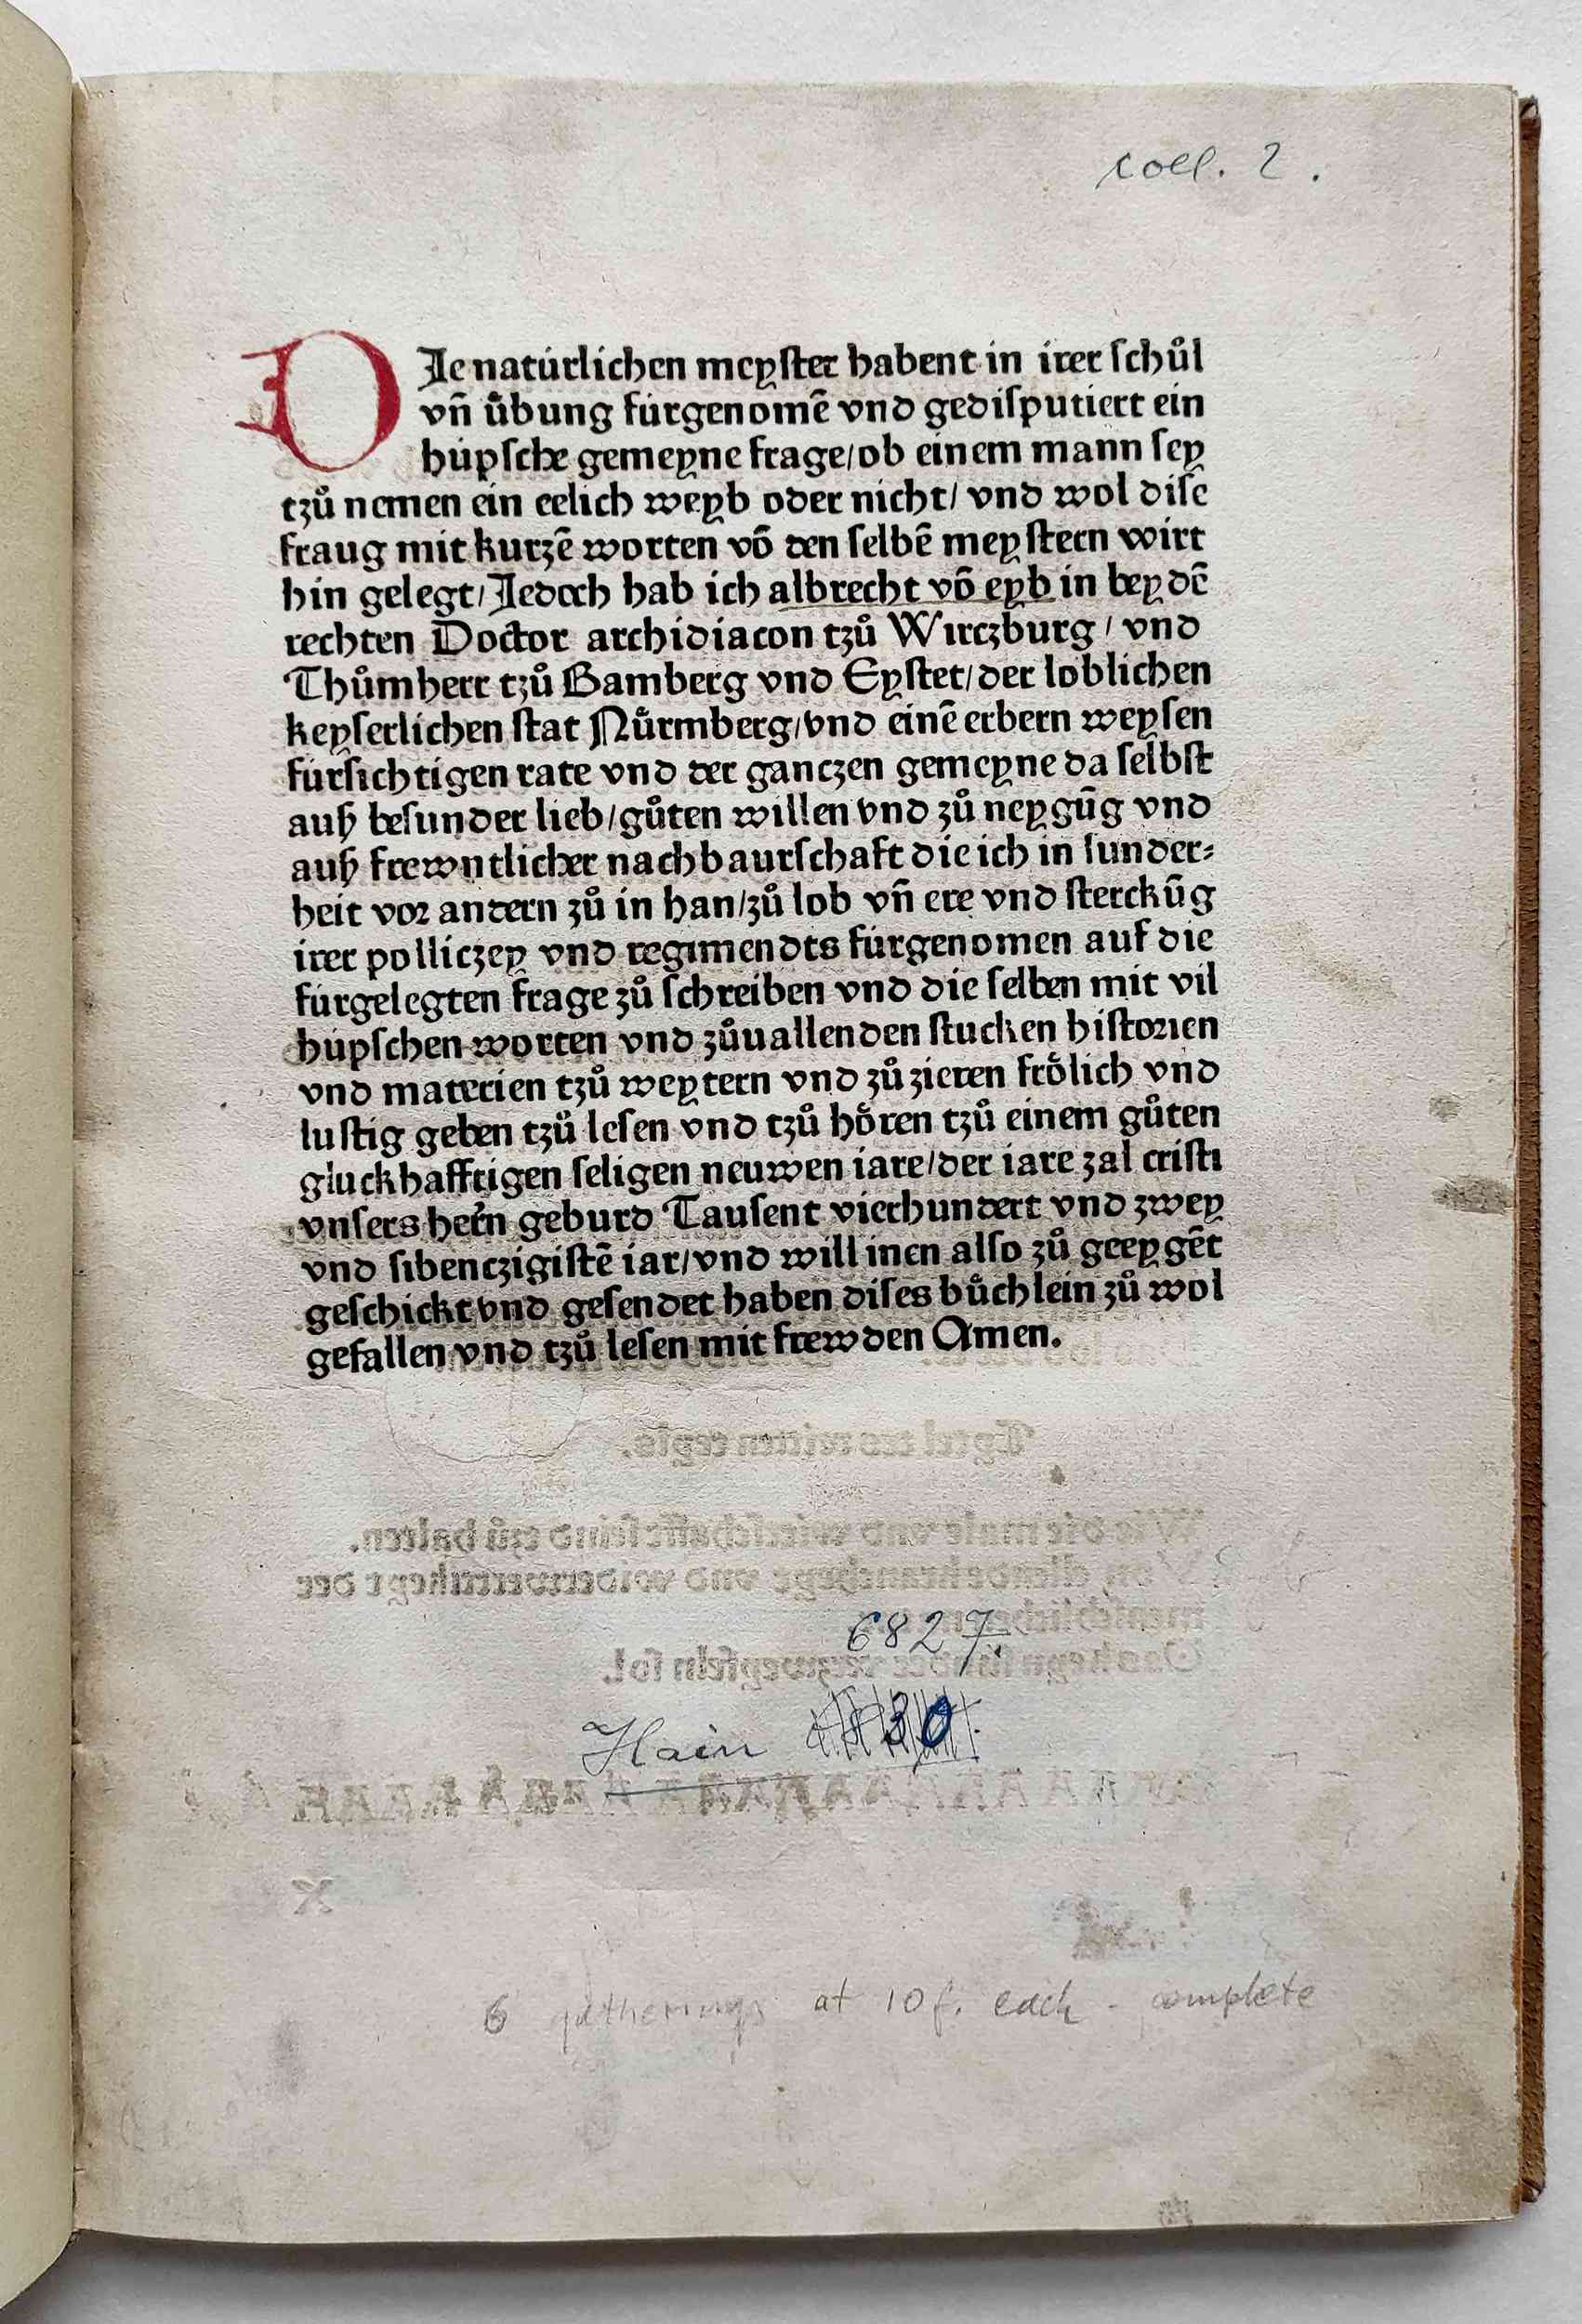 coll. 2.
DIe natúrlichen meyſter habent in irer ſchůl
vñ ůbung fúrgenomē vnd gediſputiert ein
húpſche gemeyne frage/ob einem mann ſey
tzů nemen ein eelich weyb oder nicht/ vnd wol diſe
fraug mit kurzē worten vō den ſelbē meyſtern wirt
hin gelegt/Jedoch hab ich albrecht vō eyb in beydē
rechten Doctor archidiacon tzů Wirczburg/ vnd
Thůmherr tzů Bamberg vnd Eyſtet/der loblichen
keyſerlichen ſtat Nůrmberg/vnd einē erbern weyſen
fúrſichtigen rate vnd der ganczen gemeyne da ſelbſt
auß beſunder lieb/gůten willen vnd zů neygūg vnd
auß frewntlicher nachbaurſchaft die ich in ſunder⸗
heit vor andern zů in han/zů lob vñ ere vnd ſterckūg
irer polliczey vnd regimendts fúrgenomen auf die
fúrgelegten frage zů ſchreiben vnd die ſelben mit vil
húpſchen worten vnd zůuallenden ſtucken hiſtorien
vnd materien tzů weytern vnd zů zieren frőlich vnd
luſtig geben tzů leſen vnd tzů hőren tzů einem gůten
gluckhafftigen ſeligen neuwen iare/der iare zal criſti
vnſers herñ geburd Tauſent vierhundert vnd zwey
vnd ſibenczigiſtē iar/vnd will inen alſo zů geeygēt
geſchickt vnd geſendet haben diſes bůchlein zů wol
gefallen vnd tzů leſen mit frewden Amen.
6827.
Hain
6 gatherings at 10 f. each - complete